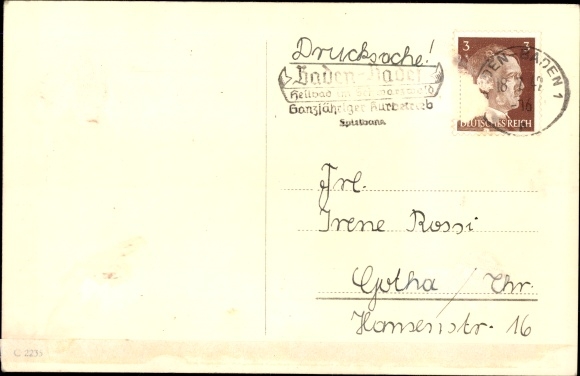 Drucksache!
Baden-Baden
Heilbad im Schwarzwald
Ganzjähriger Kurbetrieb
Spielbank
3 3
DEUTSCHES REICH
BADEN-BADEN 1
18
16
Frl.
Irene Rossi
Gotha / Thr.
Hansenstr. 16
C 2233